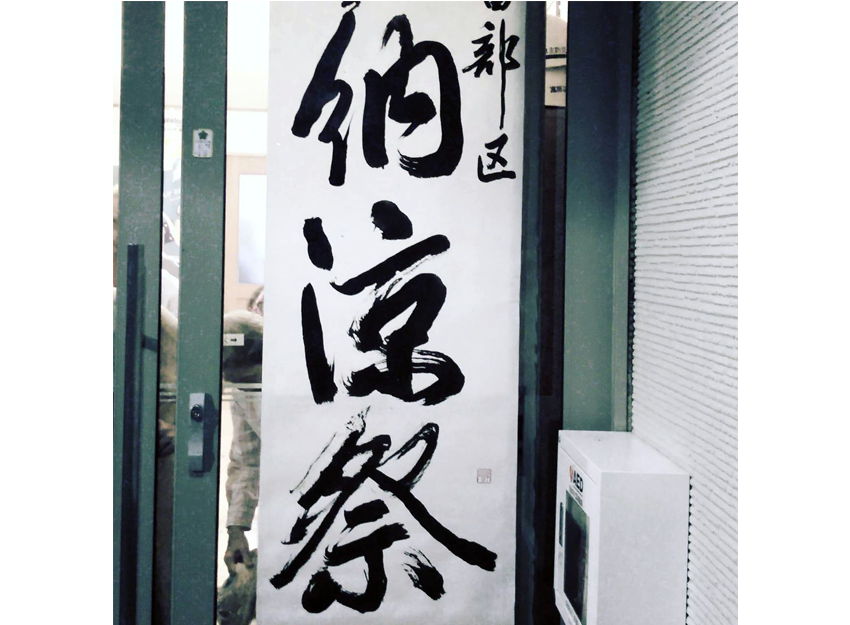 部区
納涼祭
AED